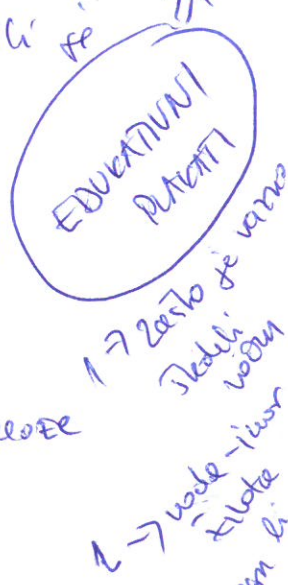 li je
EDUKATIVNI
PLAKATI
1 → zašto je važno
štedeti
vodu
1 → voda - izvor
života
li